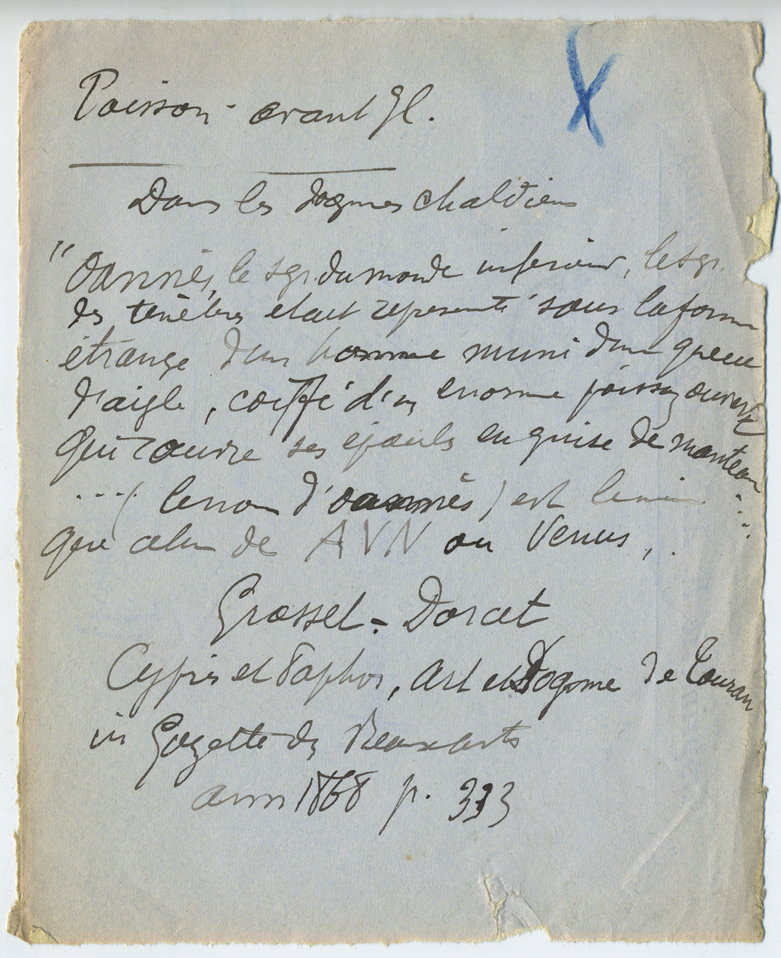 Poisson avant
Dans les dogmes chaldéens
"Oannès, le sgr du monde inférieur, le sgr.
des ténèbres etait representé sous la forme
étrange d'un homme muni d'une queue
d'aigle, coiffé d'un enorme poisson ouvert
qui couvre ses épaules en guise de manteau
...( le nom d'oannès) est le
que celui de AVN ou Venus,
Grasset-Dorcet
Cypris et Paphos, Art et Dogme de Touran
in Gazette des Beaux arts
ann 1868 p. 333